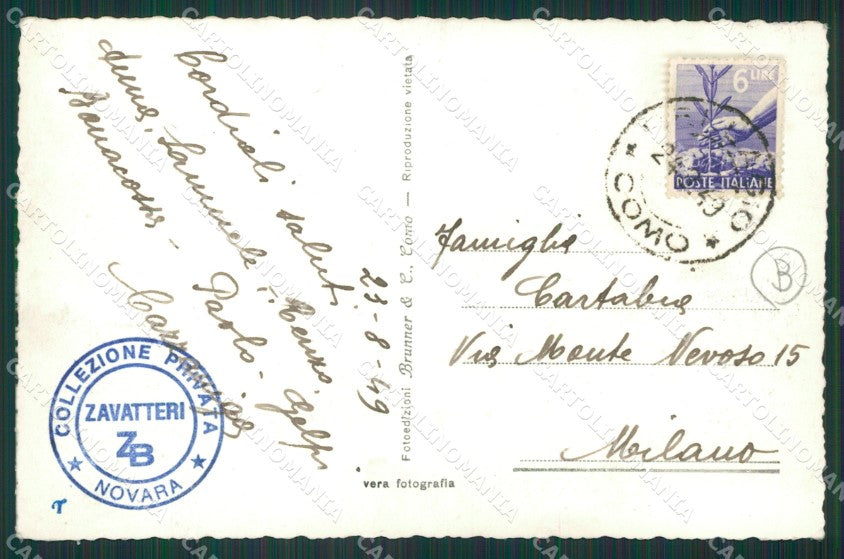 Cordiali saluti
Anna, Samuele, Renzo,
Bonacossa - Paolo -
23-8-49
Fotoedizioni Brunner & C., Como — Riproduzione vietata
vera fotografia
COLLEZIONE PRIVATA
ZAVATTERI
ZB
NOVARA
6 LIRE
POSTE ITALIANE
COMO
B
Famiglia
Cartabia
Via Monte Nevoso 15
Milano
CARTOLINOMANIA